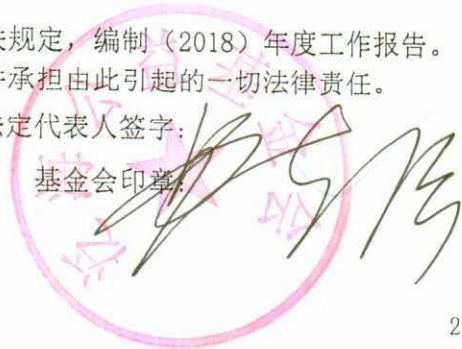 关规定，编制（2018）年度工作报告。
并承担由此引起的一切法律责任。
法定代表人签字：
基金会印章：
2